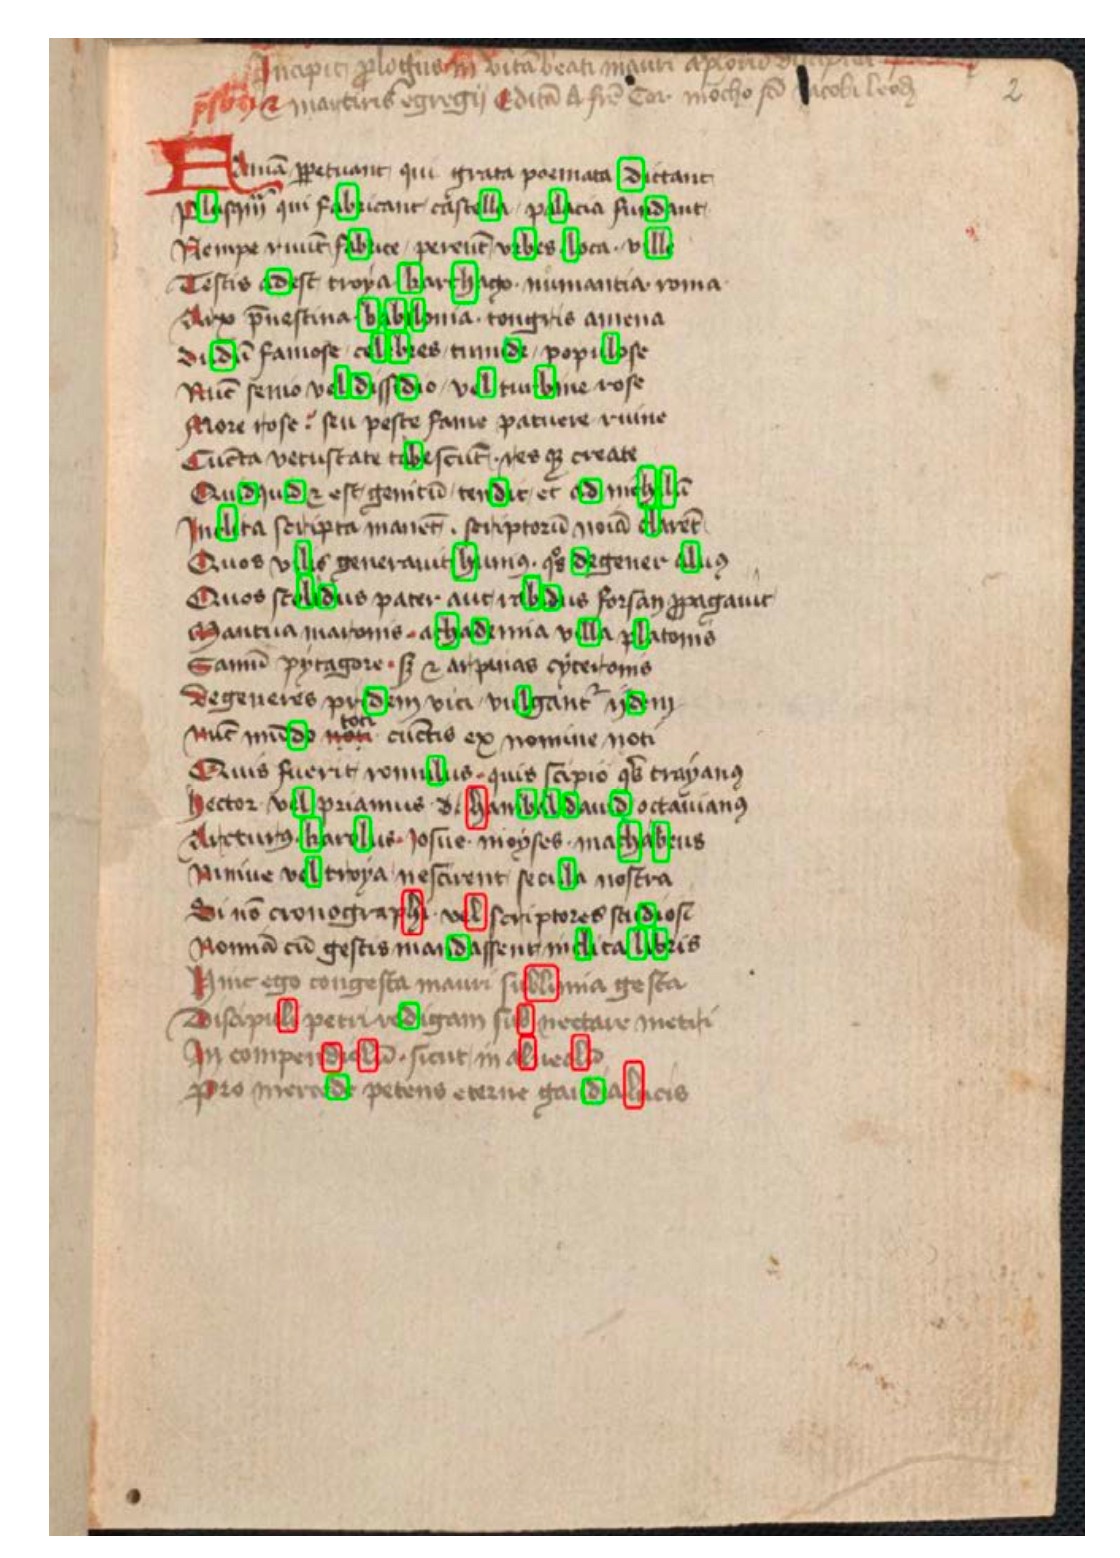 Incipit plogus in vitã beati mauri apłorũ discipuli
p̃sbri & martiris egregij Editã A frẽ Cor mõcho sc̃i Jacobi leodẏ
2
Animã ppetuant qui grata poemata dictant
Plusqm̃ qui fabricant castella palacia fundant
Nempe ruũt fabrice pereũt vrbes loca ville
Testis adest troya karthago numantia roma
Arx p̃nestina babilonia tongris amena
Dudũ famose celebres timide populose
Nũc senio vel dissidio vel turbine rose
More rose seu peste fame patuere ruine
Cũcta vetustate tabescũt res qȝ create
Quidquid & est genitũ tendit et ad nichilũ
Inclita scripta manẽt scriptorũ noĩa clarẽt
Quos vilis generauit humus qͦs degener aluus
Quos stolidus pater aut rabidus forsan ppagauit
Mantua maronis achademia villa platonis
Samũ pytagore sȝ & arpinas cyceronis
Degeneres pridem vici vulgant᷑ ijdem
toti
Nũc mũdo noti cũctis ex nomine noti
Quis fuerit romulus quis scipio qs trayanus
Hector vel priamus d. hanibal dauid octauianus
Arcturus karolus Josue moyses machabeus
Niniue vel troya nescirent secula nostra
Si nõ cronographi vel scriptores studiosi
Nomiã cũ gestis mandassent inclita libris
Hinc ego congesta mauri sublimia gesta
Discipuli petri redigam sub nectare metri
In compendiolũ sicut in alueolũ
Pro mercede petens eterne gaudia lucis